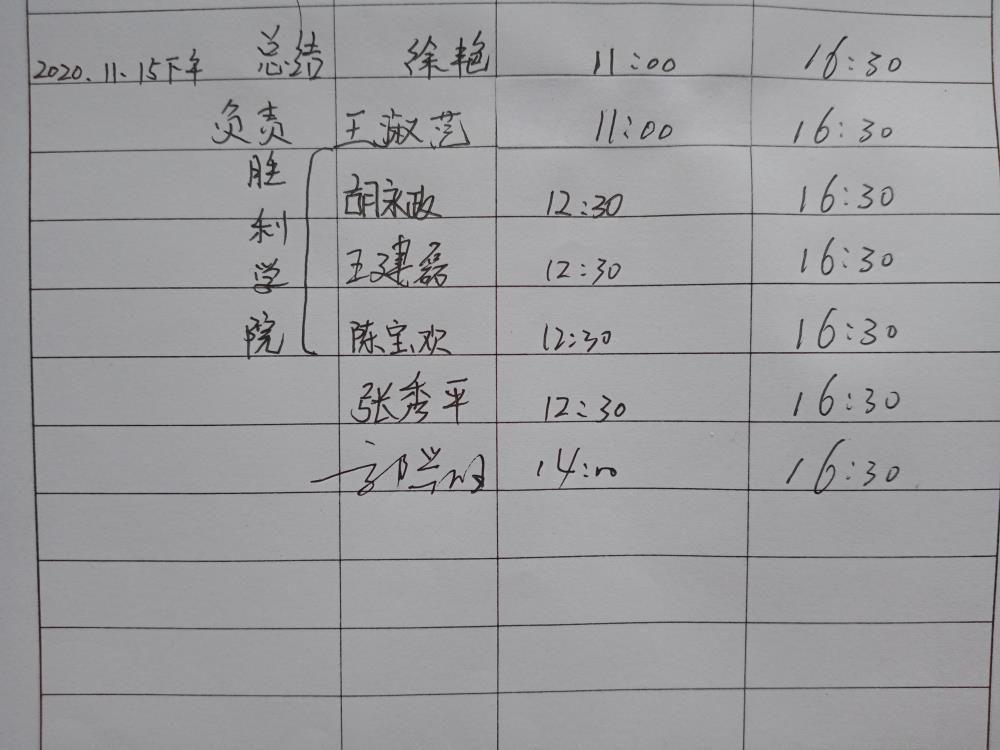 2020.11.15下午 总结 徐艳 11:00 16:30
负责 王淑范 11:00 16:30
胜 胡永政 12:30 16:30
利 王建磊 12:30 16:30
学 12:30 16:30
院 陈宝欢 12:30 16:30
张秀平 12:30 16:30
14:00 16:30